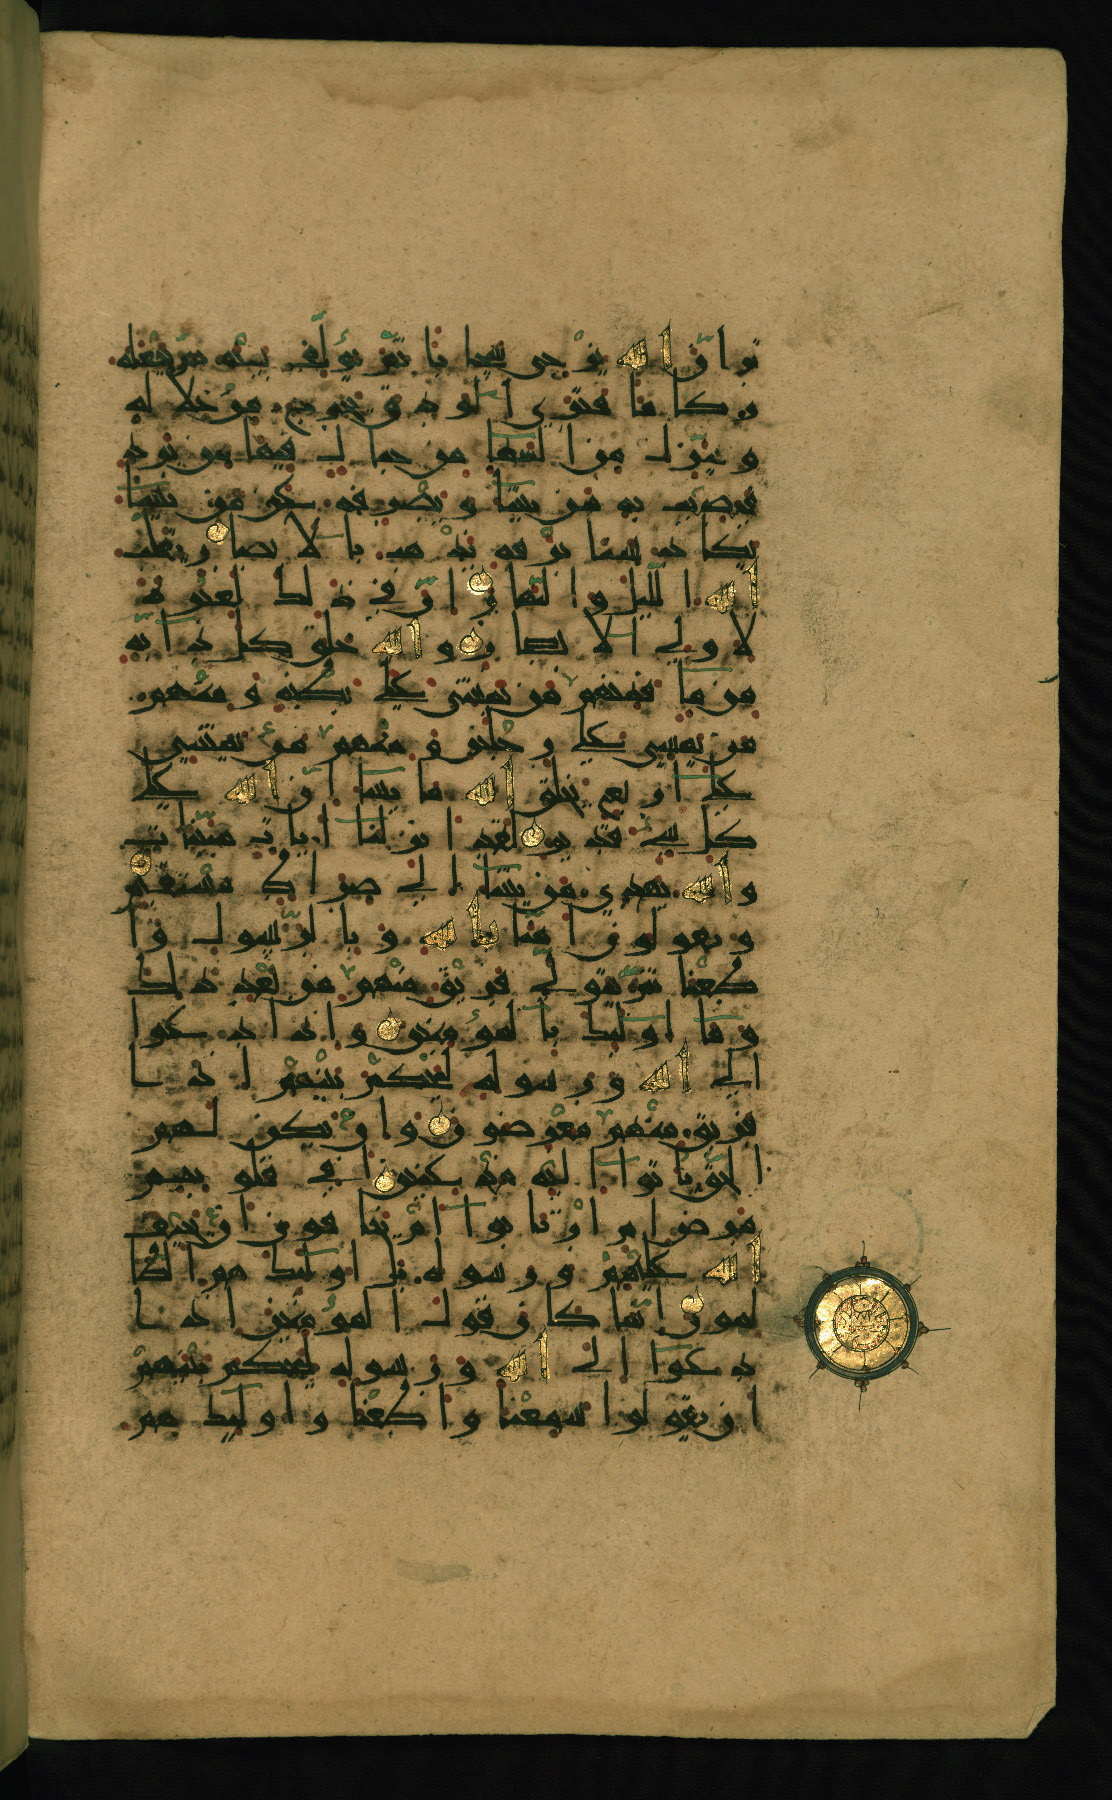 تر ان الله يزجي سحابا ثم يؤلف بينه ثم يجعله
ركاما فترى الودق يخرج من خلاله
وينزل من السما من جبال فيها من برد
فيصيب به من يشا ويصرفه عن من يشا
يكاد سنا برقه يذهب بالابصار يقلب
الله الليل والنهار ان في ذلك لعبرة
لاولي الابصار والله خلق كل دابة
من ما فمنهم من يمشي على بطنه ومنهم
من يمشي على رجلين ومنهم من يمشي
على اربع يخلق الله ما يشا ان الله على
كل شي قدير لقد انزلنا ايات مبينات
والله يهدي من يشا الى صراط مستقيم
ويقولون امنا بالله وبالرسول وا
طعنا ثم يتولى فريق منهم من بعد ذلك
وما اولئك بالمؤمنين واذا دعوا
الى الله ورسوله ليحكم بينهم اذا
فريق منهم معرضون وان يكن لهم
الحق ياتوا اليه مذعنين افي قلوبهم
مرض ام ارتابوا ام يخافون ان يحيف
الله عليهم ورسوله بل اولئك هم الظا
لمون انما كان قول المؤمنين اذا
دعوا الى الله ورسوله ليحكم بينهم
ان يقولوا سمعنا واطعنا واولئك هم